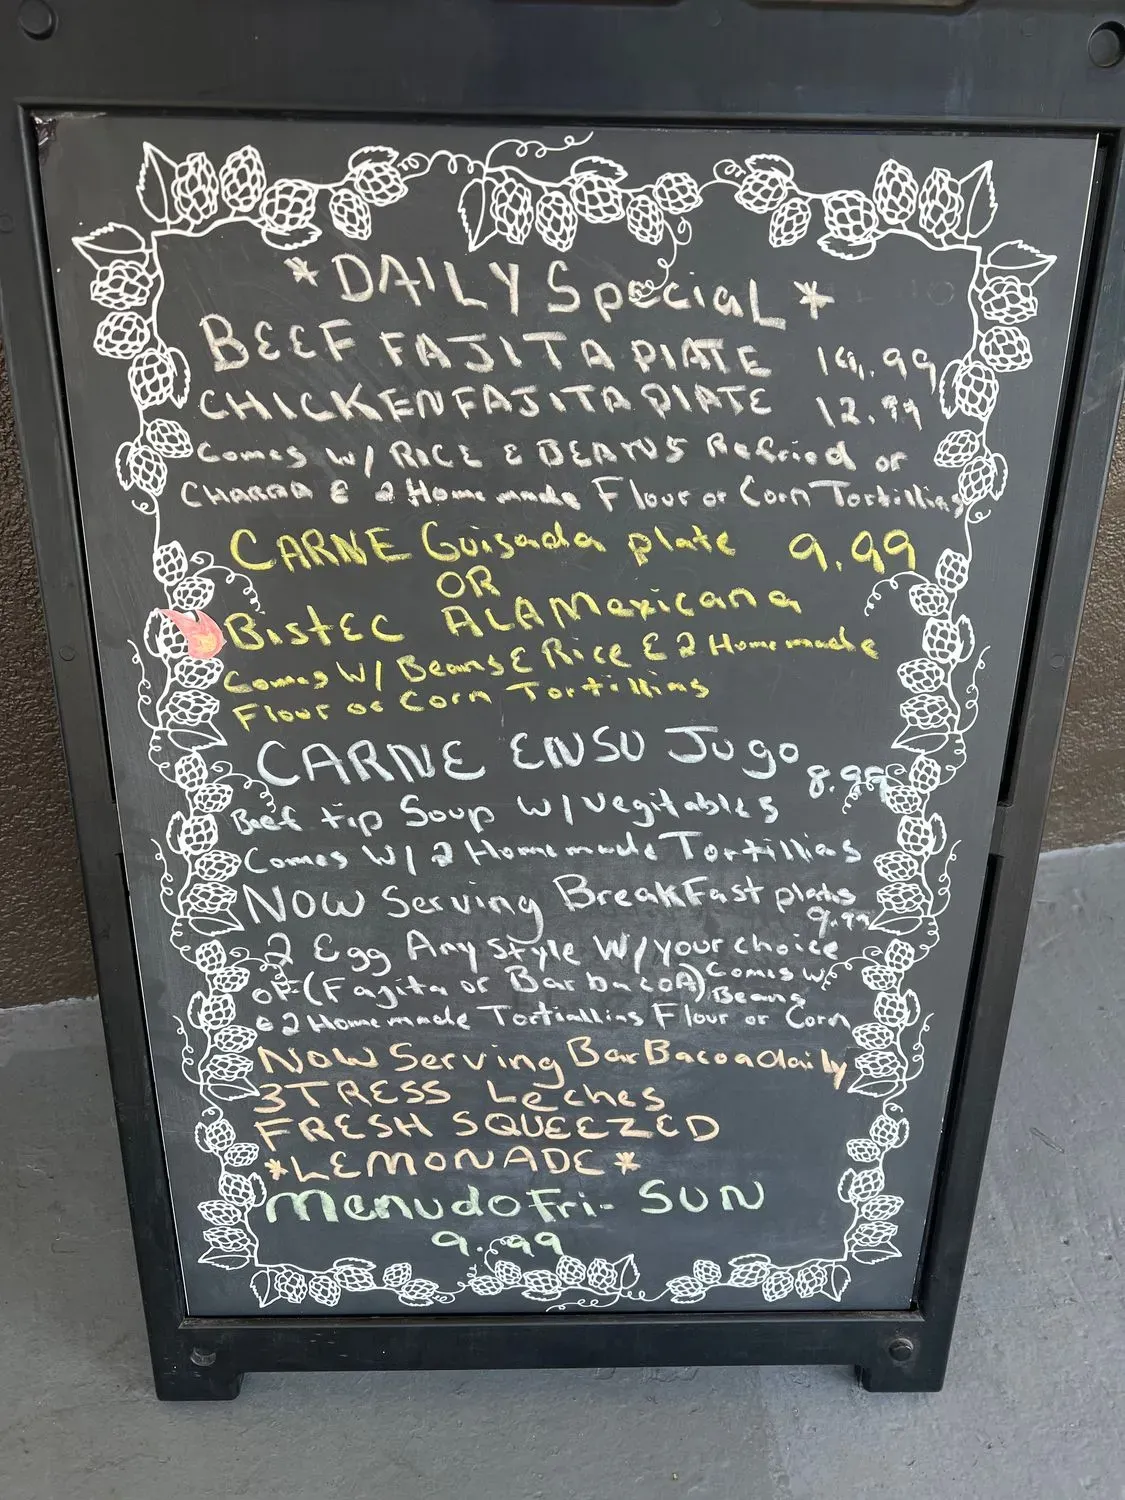 *DAILY Special*
BEEF FAJITA PlATE
CHICKEN FAJITA PlATE 12.99
Comes W/ RICE & BEANS Refried or
CHARRA & 2 Homemade Flour or Corn Tortillias
CARNE Guisada plate 9.99
OR
BistEC ALA Mexicana
Comes W/ Beans & Rice & 2 Homemade
Flour or Corn Tortillias
CARNE ENSU Jugo 8.99
Beef tip Soup W/ Vegitables
Comes W/ 2 Homemade Tortillias
NOW Serving BreakFast plates
9.99
2 Egg Any style W/ your choice
of (Fajita or BarbacoA) Comes W/
Beans
& 2 Homemade Tortiallias Flour or Corn
NOW Serving BarBacoa daily
3 TRESS Leches
FRESH SQUEEZED
*LEMONADE*
Menudo Fri- SUN
9.99